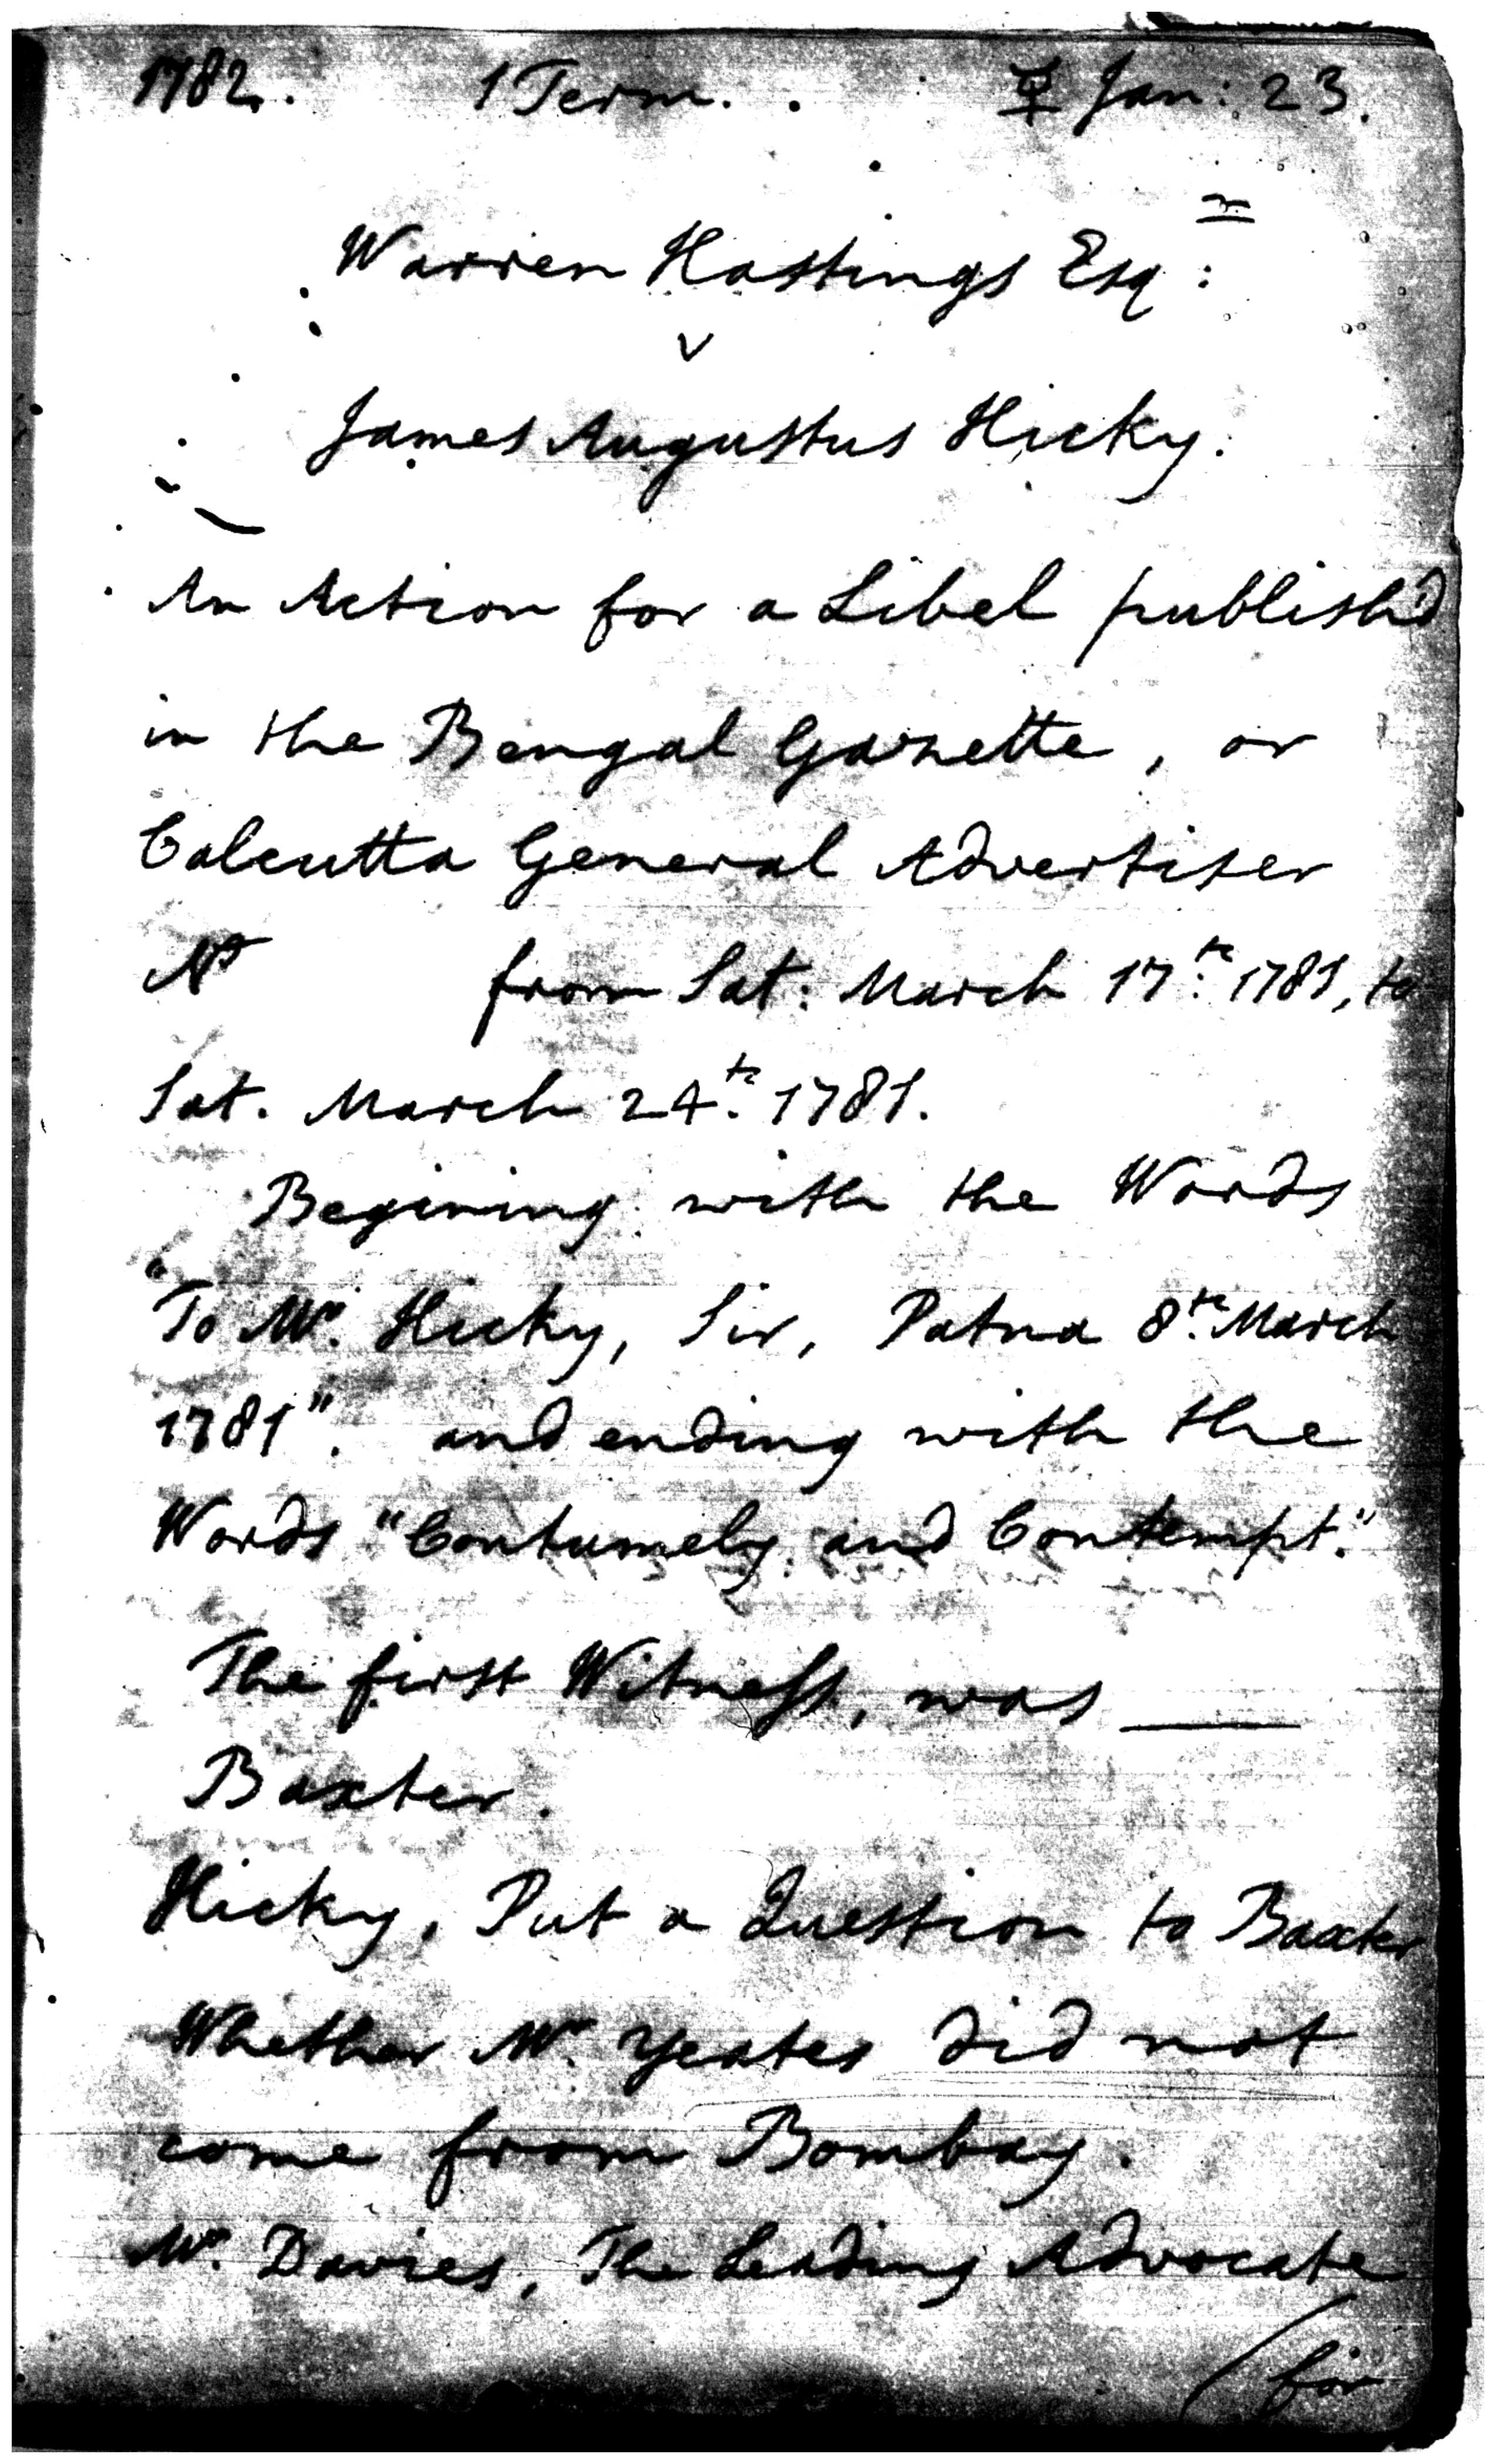 1782. 1 Term. ☿ Jan: 23.
Warren Hastings Esq:r
v
James Augustus Hicky.
An Action for a Libel publish'd
in the Bengal Gazette, or
Calcutta General Advertiser
No from Sat: March 17th 1781, to
Sat. March 24th 1781.
Begining with the Words
"To Mr. Hicky, Sir, Patna 8th March
1781". and ending with the
Words "Contumely and Contempt."
The first Witness, was ____
Baxter.
Hicky, Put a Question to Baxter
Whether Mr. Yeates did not
come from Bombay.
Mr. Davies, The Leading Advocate
(for